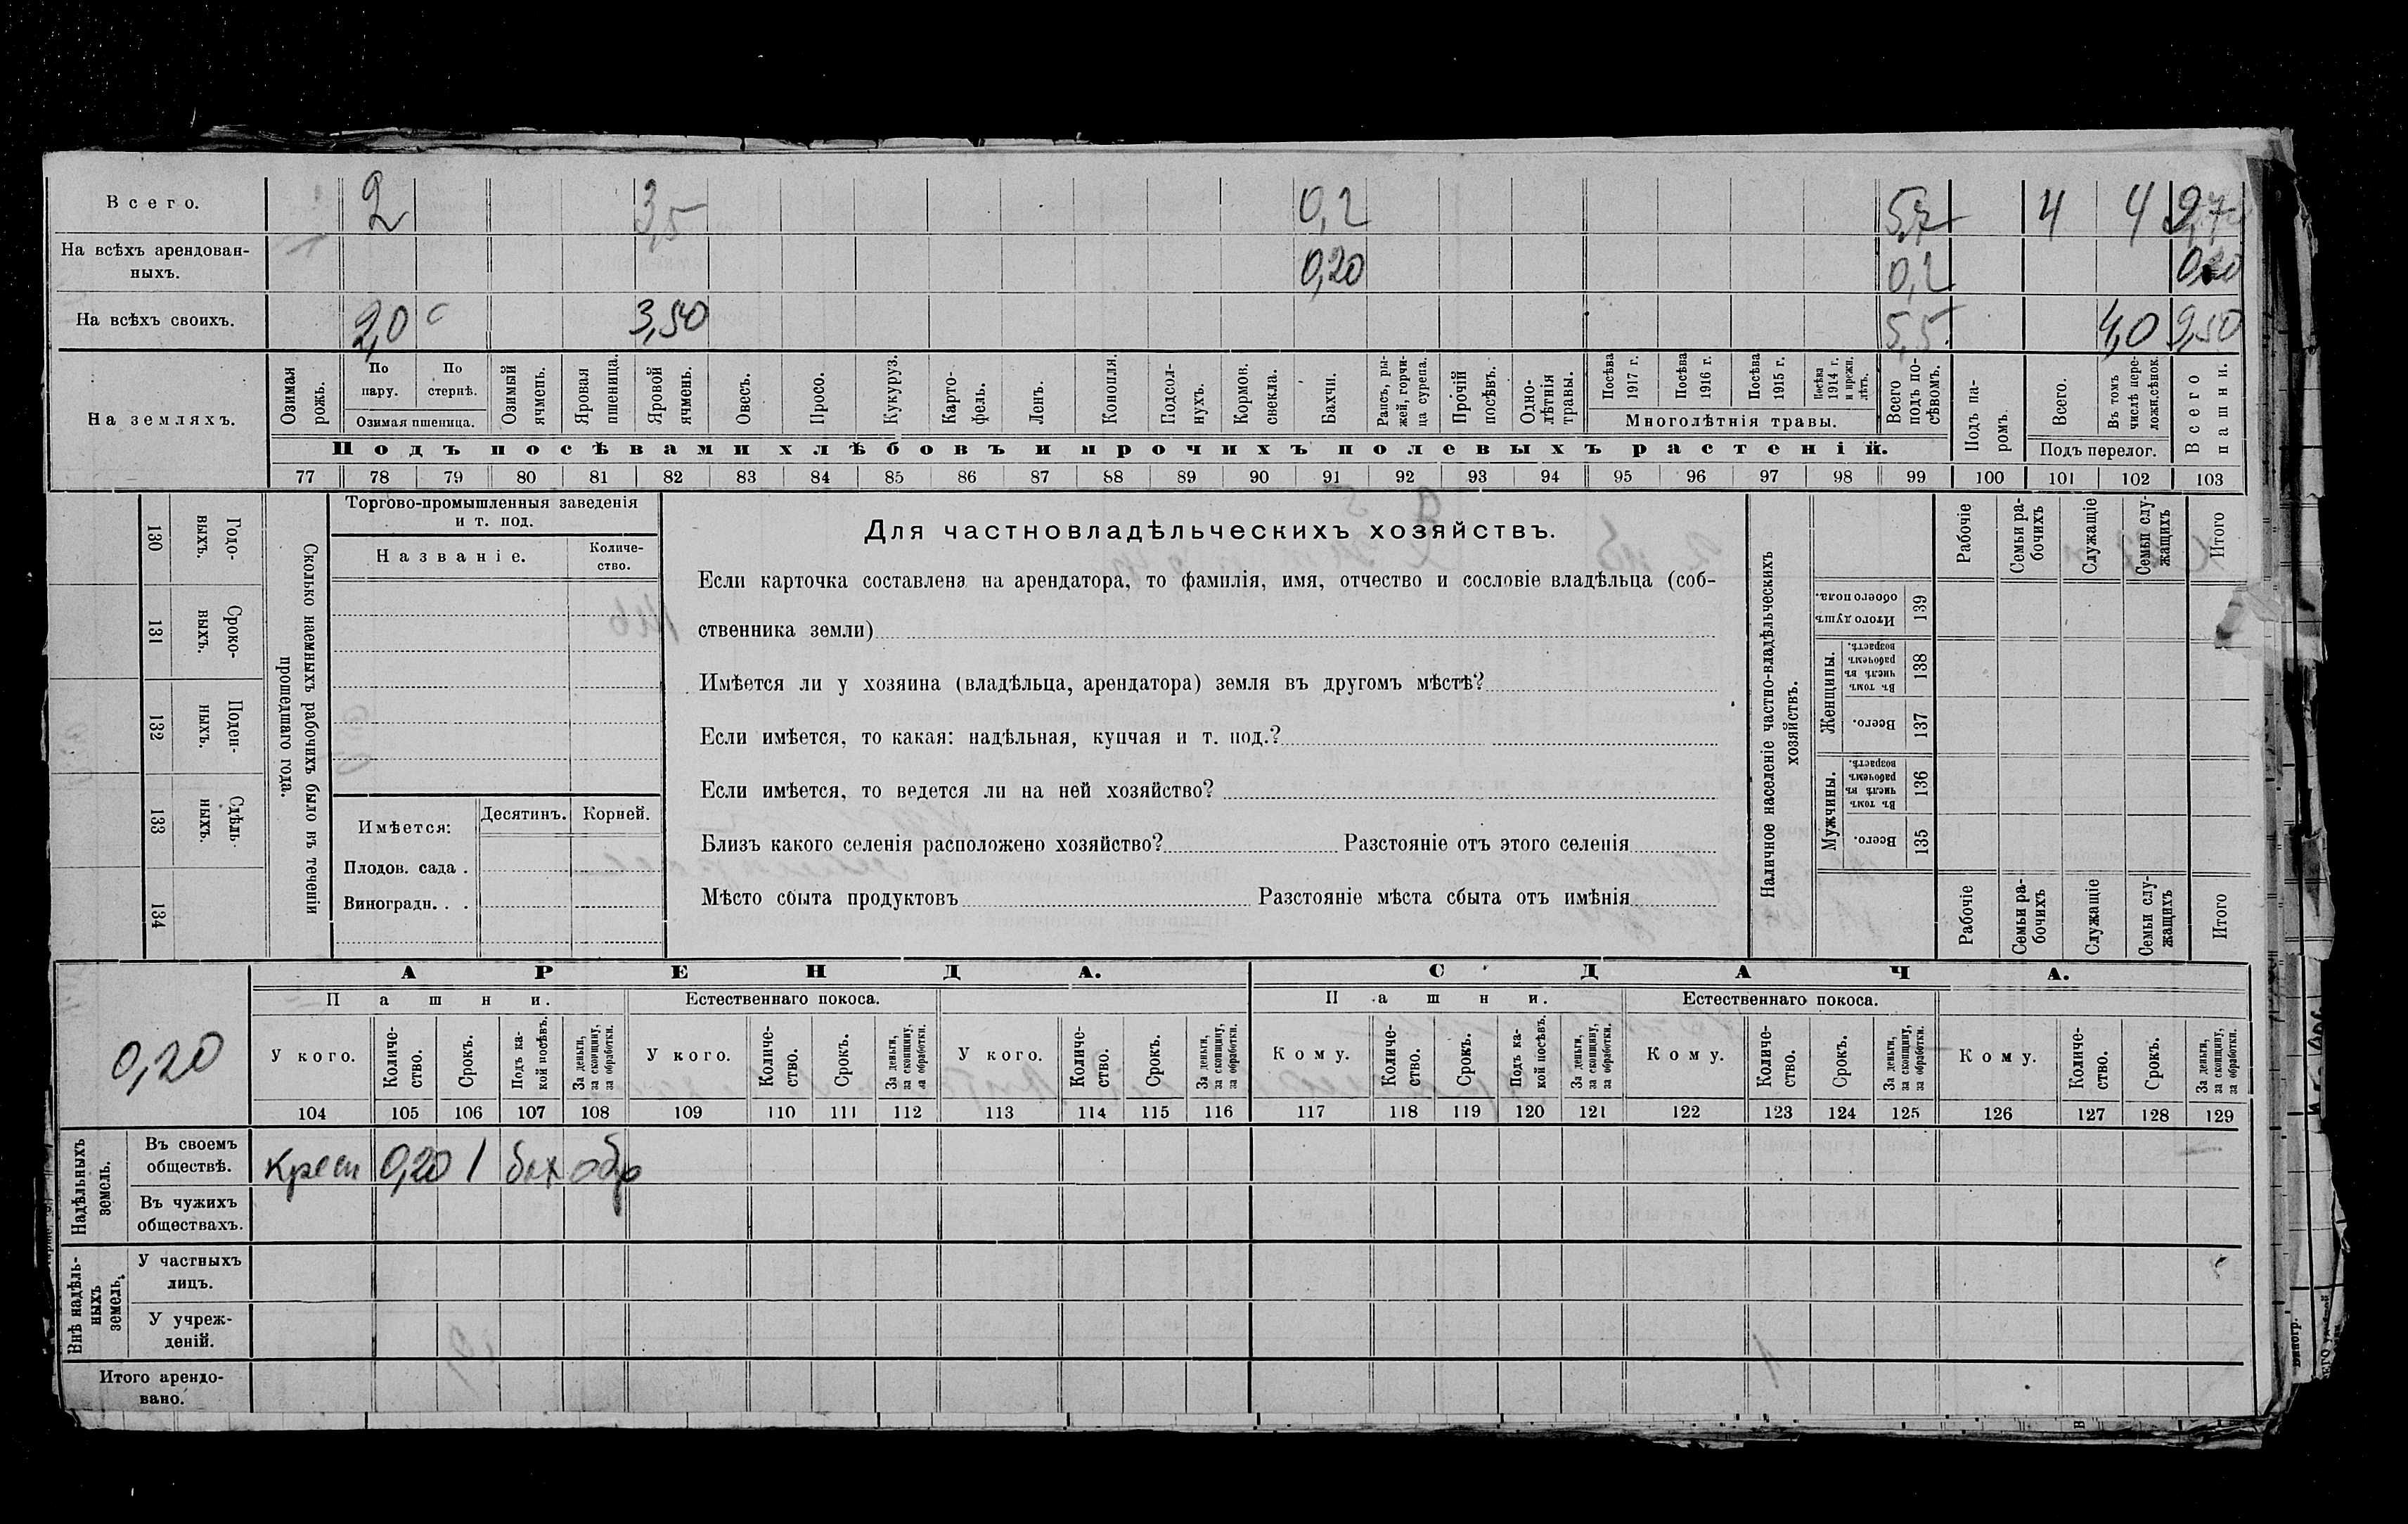 Всего. 2 3,5 0,2 5,7 4 4 9,7
На всѣхъ арендован-
ныхъ. 0,20 0,2 0,20
На всѣхъ своихъ. 2,0 с 3,50 5,5 4,0 9,50
На земляхъ.
Озимая рожь.
По пару.
По стернѣ.
Озимая пшеница.
Озимый ячмень.
Яровая пшеница.
Яровой ячмень.
Овесъ.
Просо.
Кукуруз.
Карто-
фель.
Ленъ.
Конопля.
Подсол-
нухъ.
Кормов. свекла.
Бахчи.
Рапсъ, ры-
жей, горчи-
ца сурепа.
Прочій посѣвъ.
Одно-
лѣтнія травы.
Посѣва 1917 г.
Посѣва 1916 г.
Посѣва 1915 г.
Посѣва 1914 г. и прежн. лѣтъ.
Многолѣтнія травы.
Всего подъ по-
сѣвомъ.
Подъ па-
ромъ.
Всего.
Въ томъ числѣ пере-
ложн.сѣнок.
Подъ перелог.
Всего пашни.
Подъ посѣвами хлѣбовъ и прочихъ полевыхъ растеній.
77 78 79 80 81 82 83 84 85 86 87 88 89 90 91 92 93 94 95 96 97 98 99 100 101 102 103
Сколько наемныхъ рабочихъ было въ теченіи
прошедшаго года.
Годо-
выхъ.
130
Сроко-
ныхъ.
131
Поден-
ныхъ.
132
Сдѣль-
ныхъ.
133
134
Торгово-промышленныя заведенія
и т. под.
Названіе.
Количе-
ство.
Имѣется:
Десятинъ.
Корней.
Плодов. сада .
Виноградн. . .
Для частновладѣльческихъ хозяйствъ.
Если карточка составлена на арендатора, то фамилія, имя, отчество и сословіе владѣльца (соб-
ственника земли)
Имѣется ли у хозяина (владѣльца, арендатора) земля въ другомъ мѣстѣ?
Если имѣется, то какая: надѣльная, купчая и т. под.?
Если имѣется, то ведется ли на ней хозяйство?
Близъ какого селенія расположено хозяйство? Разстояніе отъ этого селенія
Мѣсто сбыта продуктовъ Разстояніе мѣста сбыта отъ имѣнія
Наличное населеніе частно-владѣльческихъ
хозяйствъ.
Рабочіе
Семьи ра-
бочихъ
Служащіе
Семьи слу-
жащихъ
Итого
Итого душъ обоего пола.
139
Женщины.
Въ томъ числѣ въ рабочемъ возрастѣ.
138
Всего.
137
Мужчины.
Въ томъ числѣ въ рабочемъ возрастѣ.
136
Всего.
135
Рабочіе
Семьи ра-
бочихъ
Служащіе
Семьи слу-
жащихъ
Итого
АРЕНДА. СДАЧА.
Пашни. Естественнаго покоса. Пашни. Естественнаго покоса.
0,20
У кого.
Количе-
ство.
Срокъ.
Подъ ка-
кой посѣвъ.
За деньги,
за скопщину,
за обработки.
У кого.
Количе-
ство.
Срокъ.
За деньги,
за скопщину,
за обработки.
У кого.
Количе-
ство.
Срокъ.
За деньги,
за скопщину,
за обработки.
Кому.
Количе-
ство.
Срокъ.
Подъ ка-
кой посѣвъ.
За деньги,
за скопщину,
за обработки.
Кому.
Количе-
ство.
Срокъ.
За деньги,
за скопщину,
за обработки.
Кому.
Количе-
ство.
Срокъ.
За деньги,
за скопщину,
за обработки.
104 105 106 107 108 109 110 111 112 113 114 115 116 117 118 119 120 121 122 123 124 125 126 127 128 129
Надѣльныхъ
земель.
Въ своемъ
обществѣ. крест 0,20 1 бах обр
Въ чужихъ
обществахъ.
Внѣ надѣль-
ныхъ
земель.
У частныхъ
лицъ.
У учреж-
деній.
Итого арендо-
вано.